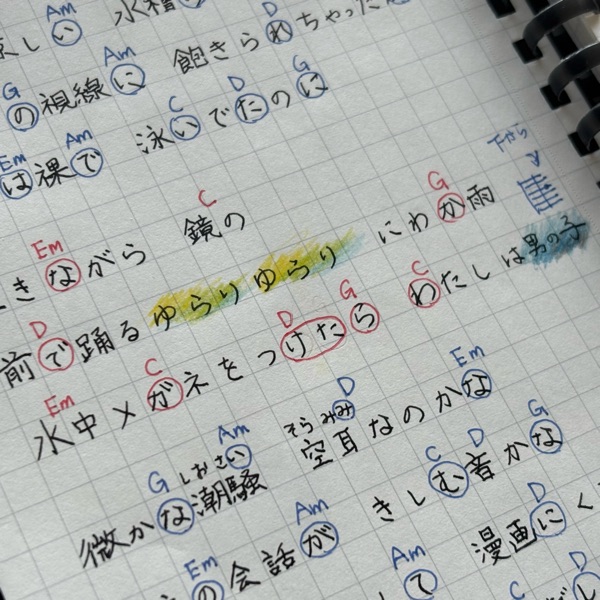 Am
涼しい 水槽
G Am D
の視線に 飽きられちゃった
Em Am C D G
は裸で 泳いでたのに
Em C
きながら 鏡の
D G 下から
前で踊る ゆらりゆらり にわか雨
Em C D G C
水中メガネをつけたら わたしは男の子
G しおさい Am そらみみ D Em
微かな潮騒 空耳なのかな
Em Am C D G
の会話が きしむ音かな
Am D
て 漫画にく
C D